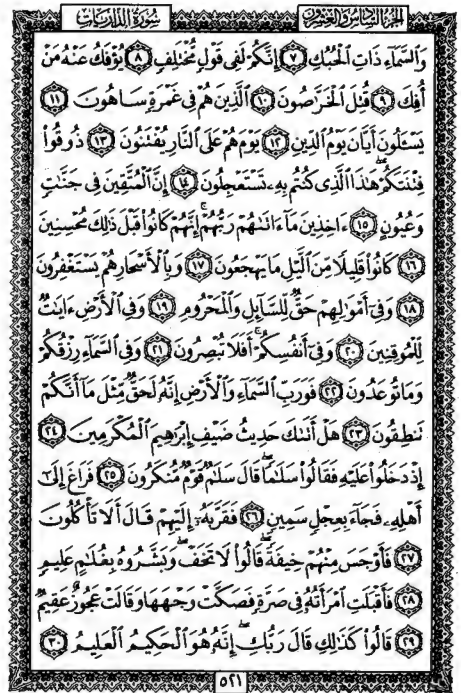 الجزء السادس والعشرون
سورة الذاريات
وَٱلسَّمَآءِ ذَاتِ ٱلۡحُبُكِ ٧ إِنَّكُمۡ لَفِى قَوۡلٖ مُّخۡتَلِفٖ ٨ يُؤۡفَكُ عَنۡهُ مَنۡ
أُفِكَ ٩ قُتِلَ ٱلۡخَرَّٰصُونَ ١٠ ٱلَّذِينَ هُمۡ فِى غَمۡرَةٖ سَاهُونَ ١١
يَسۡـَٔلُونَ أَيَّانَ يَوۡمُ ٱلدِّينِ ١٢ يَوۡمَ هُمۡ عَلَى ٱلنَّارِ يُفۡتَنُونَ ١٣ ذُوقُواْ
فِتۡنَتَكُمۡ هَٰذَا ٱلَّذِى كُنتُم بِهِۦ تَسۡتَعۡجِلُونَ ١٤ إِنَّ ٱلۡمُتَّقِينَ فِى جَنَّٰتٖ
وَعُيُونٍ ١٥ ءَاخِذِينَ مَآ ءَاتَىٰهُمۡ رَبُّهُمۡۚ إِنَّهُمۡ كَانُواْ قَبۡلَ ذَٰلِكَ مُحۡسِنِينَ
١٦ كَانُواْ قَلِيلٗا مِّنَ ٱلَّيۡلِ مَا يَهۡجَعُونَ ١٧ وَبِٱلۡأَسۡحَارِ هُمۡ يَسۡتَغۡفِرُونَ
١٨ وَفِىٓ أَمۡوَٰلِهِمۡ حَقّٞ لِّلسَّآئِلِ وَٱلۡمَحۡرُومِ ١٩ وَفِى ٱلۡأَرۡضِ ءَايَٰتٞ
لِّلۡمُوقِنِينَ ٢٠ وَفِىٓ أَنفُسِكُمۡۚ أَفَلَا تُبۡصِرُونَ ٢١ وَفِى ٱلسَّمَآءِ رِزۡقُكُمۡ
وَمَا تُوعَدُونَ ٢٢ فَوَرَبِّ ٱلسَّمَآءِ وَٱلۡأَرۡضِ إِنَّهُۥ لَحَقّٞ مِّثۡلَ مَآ أَنَّكُمۡ
تَنطِقُونَ ٢٣ هَلۡ أَتَىٰكَ حَدِيثُ ضَيۡفِ إِبۡرَٰهِيمَ ٱلۡمُكۡرَمِينَ ٢٤
إِذۡ دَخَلُواْ عَلَيۡهِ فَقَالُواْ سَلَٰمٗاۖ قَالَ سَلَٰمٞ قَوۡمٞ مُّنكَرُونَ ٢٥ فَرَاغَ إِلَىٰٓ
أَهۡلِهِۦ فَجَآءَ بِعِجۡلٖ سَمِينٖ ٢٦ فَقَرَّبَهُۥٓ إِلَيۡهِمۡ قَالَ أَلَا تَأۡكُلُونَ
٢٧ فَأَوۡجَسَ مِنۡهُمۡ خِيفَةٗۖ قَالُواْ لَا تَخَفۡۖ وَبَشَّرُوهُ بِغُلَٰمٍ عَلِيمٖ
٢٨ فَأَقۡبَلَتِ ٱمۡرَأَتُهُۥ فِى صَرَّةٖ فَصَكَّتۡ وَجۡهَهَا وَقَالَتۡ عَجُوزٌ عَقِيمٞ
٢٩ قَالُواْ كَذَٰلِكِ قَالَ رَبُّكِۖ إِنَّهُۥ هُوَ ٱلۡحَكِيمُ ٱلۡعَلِيمُ ٣٠
٥٢١